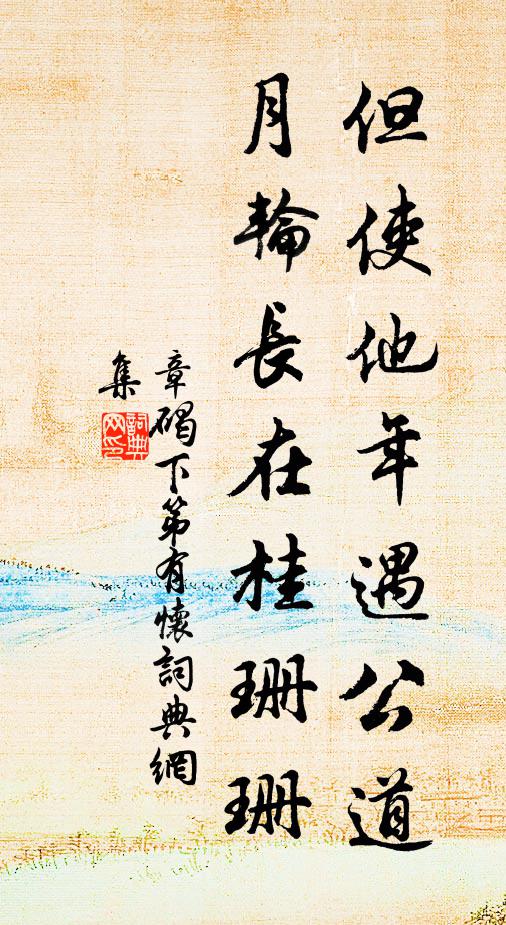 但使他年遇公道
月輪長在桂珊珊
章碣下第有懷詞典網
集
詞典
网印